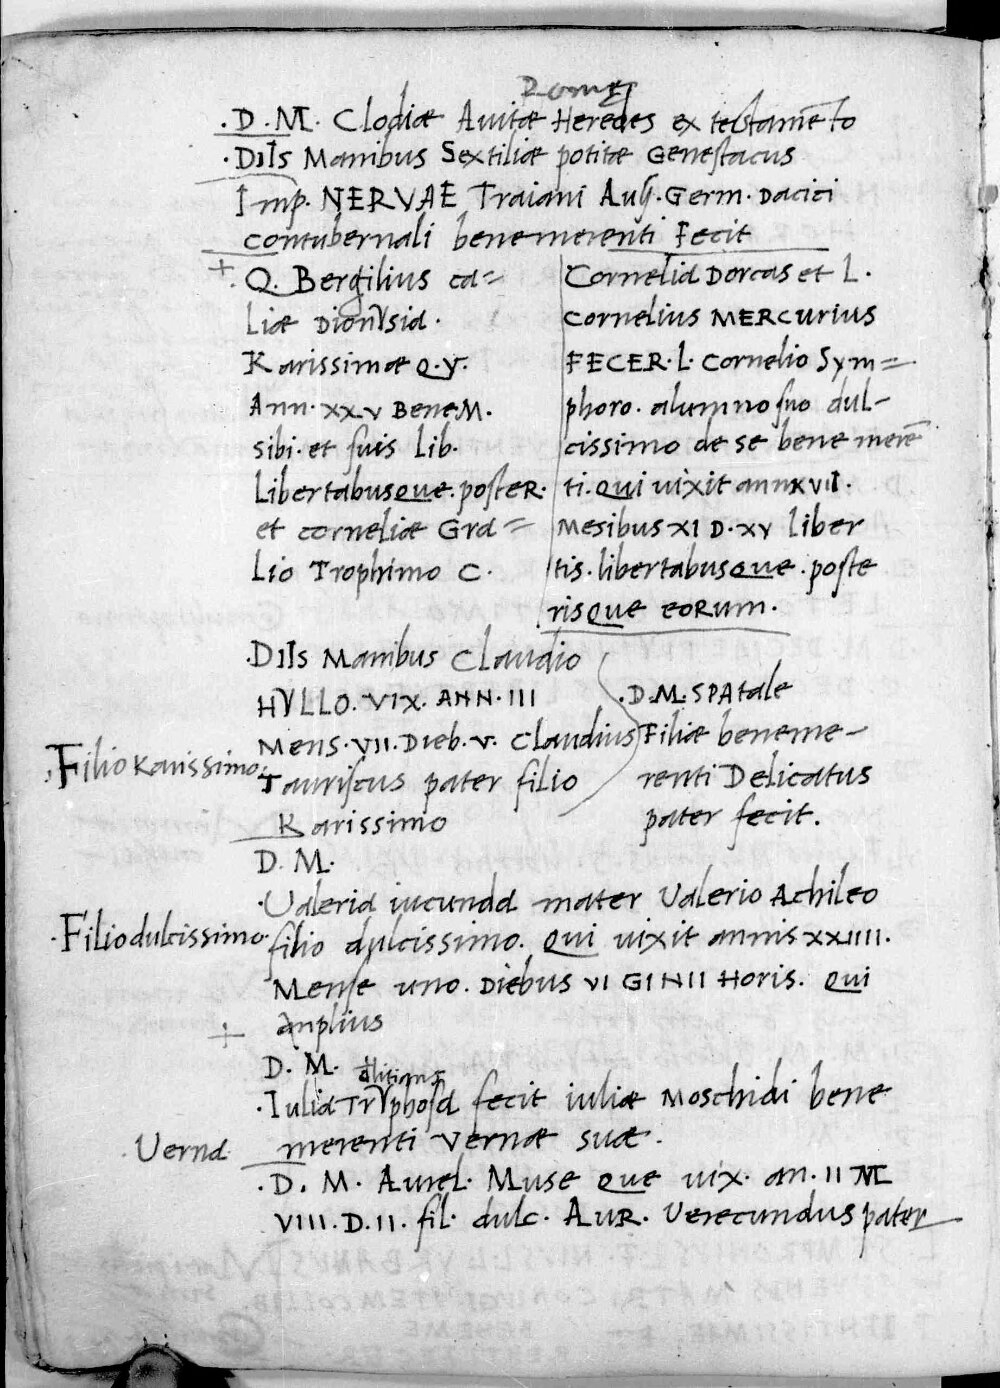 Romę
.D.M. Clodiæ Auitæ Heredes ex testamẽto
.DIIs Manibus Sextiliæ potitæ Genestacus
Imp. NERVAE Traiani Aug. Germ. Dacici
contubernali benemerenti Fecit
+ Q. Bergilius ca=
liæ Dionysia.
Karissimæ Q.V.
Ann. XXV Bene.M.
sibi. et suis Lib.
Libertabusque. posteR.
et corneliæ Gra=
Lio Trophimo C.
Cornelia Dorcas et L.
Cornelius MERCurius
FECER. L. Cornelio Sym=
phoro. alumno suo dul-
cissimo de se bene merẽ
ti. Qui uixit ann XVII.
Mesibus XI D. XV Liber
tis. libertabusque. poste
risque eoRum.
.DIIs Manibus Claudio
HVLLO. VIX. ANN. III
Mens. VII. Dieb. V. Claudius
.Filio Karissimo.
Tauriscus pater filio
Karissimo
.D.M. SPAtale
Filiæ beneme-
renti Delicatus
pater fecit.
D. M.
.Ualeria iucunda mater Valerio Achileo
.Filio dulcissimo.
filio dulcissimo. Qui uixit annis XXIIII.
Mense uno. Diebus VI GINII Horis. Qui
+ anplius
D. M.
.Iulia Tryphosa fecit iuliæ Moschidi bene
.Uerna.
merenti Vernæ suæ.
.D. M. Aurel. Muse que uix. an. II M
VIII. D. II. fil. dulc. AUR. Verecundus pater